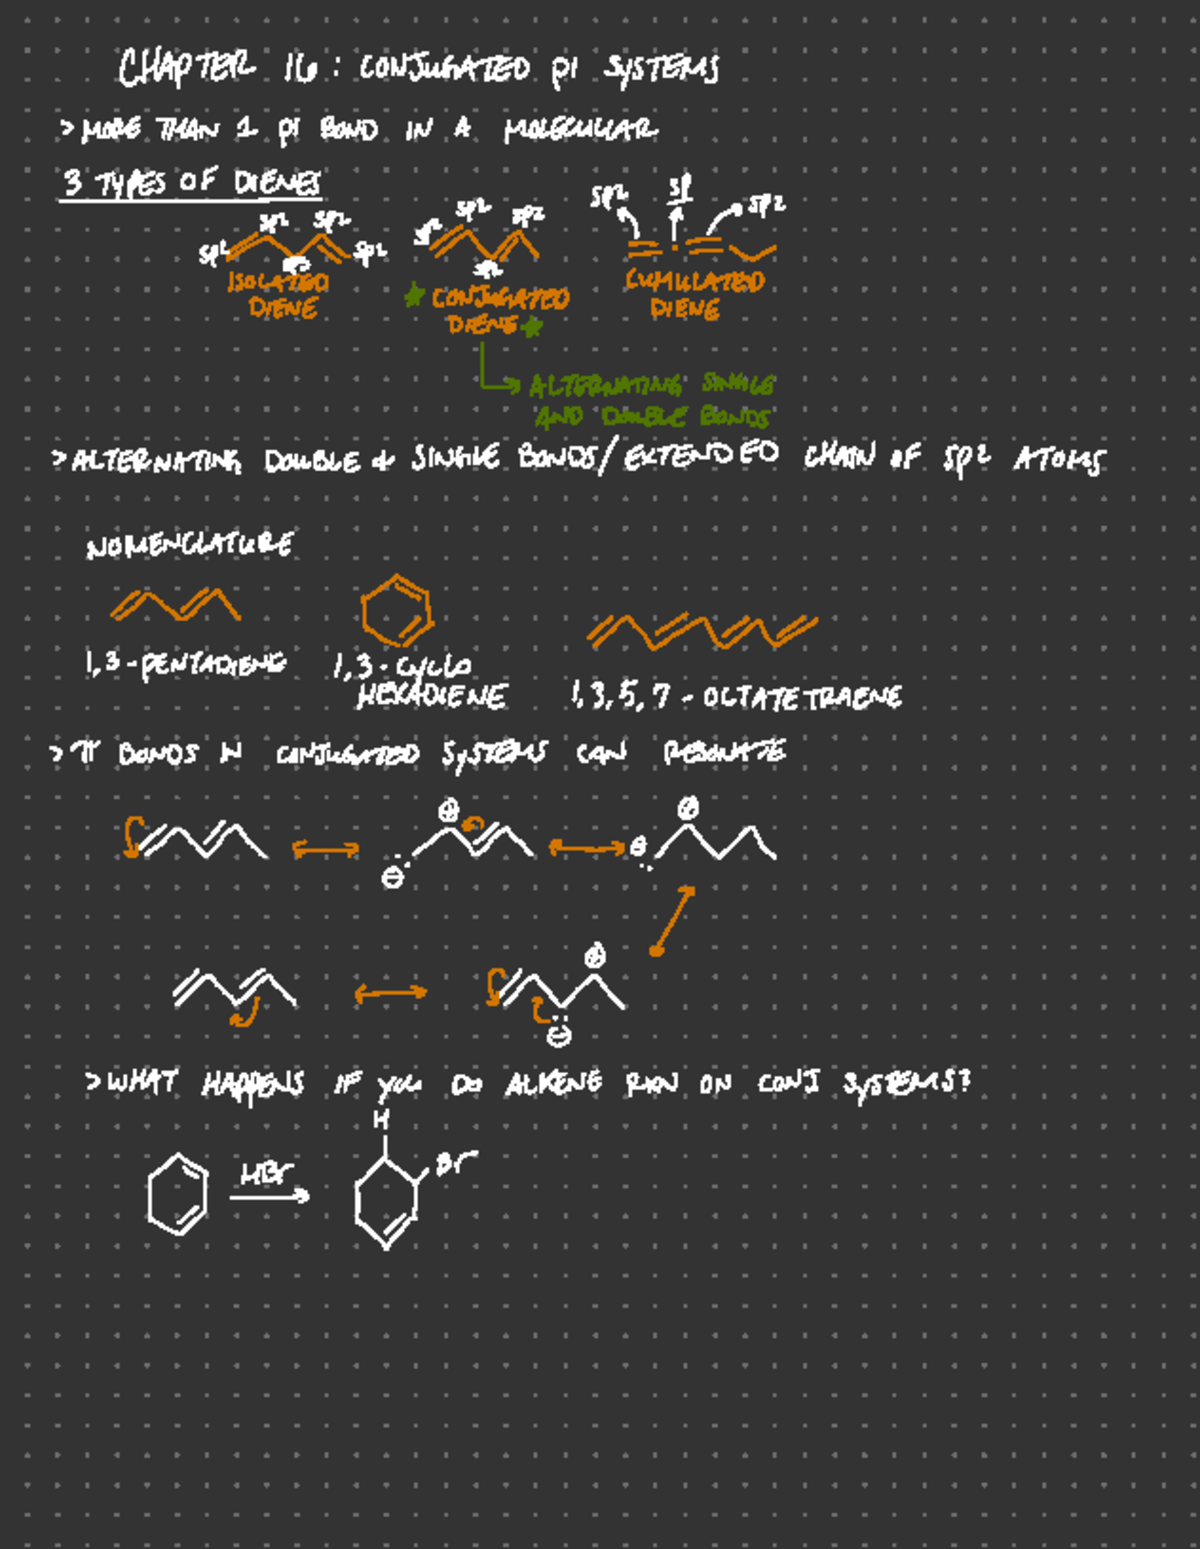 CHAPTER 16: CONJUGATED PI SYSTEMS
> MORE THAN 1 PI BOND IN A MOLECULAR
3 TYPES OF DIENES
sp2 sp2 sp3 sp2 sp2
sp2 sp2 sp2 sp2
sp2 sp sp2
ISOLATED DIENE
★ CONJUGATED DIENE ★
CUMULATED DIENE
ALTERNATING SINGLE
AND DOUBLE BONDS
> ALTERNATING DOUBLE + SINGLE BONDS/EXTENDED CHAIN OF SP2 ATOMS
NOMENCLATURE
1,3-PENTADIENE
1,3-CYCLO
HEXADIENE
1,3,5,7-OCTATETRAENE
> π BONDS IN CONJUGATED SYSTEMS CAN RESONATE
⊕ ⊕
⊖ ⊖
⊕
⊖
> WHAT HAPPENS IF YOU DO ALKENE RXN ON CONJ SYSTEMS?
H
HBr Br